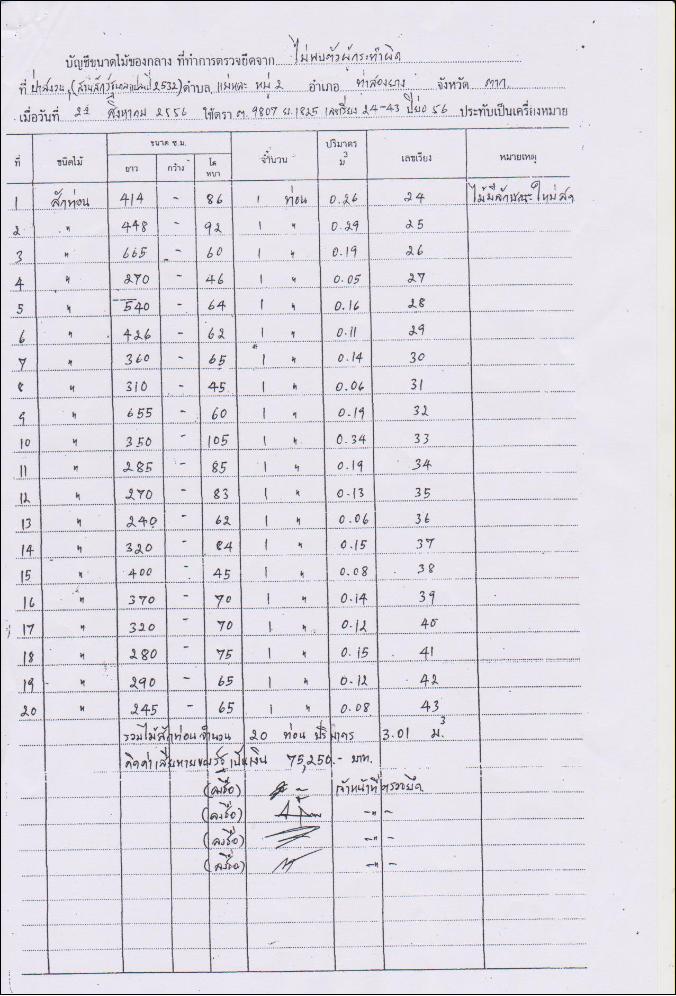 บัญชีขนาดไม้ของกลาง ที่ทำการตรวจยึดจาก ไม่พบตัวผู้กระทำผิด
ที่ ป่าสงวน ตำบล แม่หละ หมู่ 2 อำเภอ ท่าสองยาง จังหวัด ตาก
เมื่อวันที่ สิงหาคม 2556 ใช้ตรา ต. 9807 ย.1825 เลขเรียง 24-43 ปีย่อ 56 ประทับเป็นเครื่องหมาย
ที่ ชนิดไม้ ขนาด ซ.ม. จำนวน ปริมาตร ม3 เลขเรียง หมายเหตุ
ยาว กว้าง โต หนา
1 สักท่อน 414 - 86 1 ท่อน 0.26 24 ไม้มีลักษณะใหม่สด
2 " 448 - 92 1 " 0.29 25
3 " 665 - 60 1 " 0.19 26
4 " 270 - 46 1 " 0.05 27
5 " 540 - 64 1 " 0.16 28
6 " 426 - 62 1 " 0.11 29
7 " 360 - 65 1 " 0.14 30
8 " 310 - 45 1 " 0.06 31
9 " 655 - 60 1 " 0.19 32
10 " 350 - 105 1 " 0.34 33
11 " 285 - 85 1 " 0.19 34
12 " 270 - 83 1 " 0.13 35
13 " 240 - 62 1 " 0.06 36
14 " 320 - 84 1 " 0.15 37
15 " 400 - 45 1 " 0.08 38
16 " 370 - 70 1 " 0.14 39
17 " 320 - 70 1 " 0.12 40
18 " 280 - 75 1 " 0.15 41
19 " 290 - 65 1 " 0.12 42
20 " 245 - 65 1 " 0.08 43
รวมไม้สักท่อนจำนวน 20 ท่อน ปริมาตร 3.01 ม.3
คิดค่าเสียหายของรัฐเป็นเงิน 75,250.- บาท.
(ลงชื่อ) เจ้าหน้าที่ตรวจยึด
(ลงชื่อ) -"-
(ลงชื่อ) -"-
(ลงชื่อ) -"-